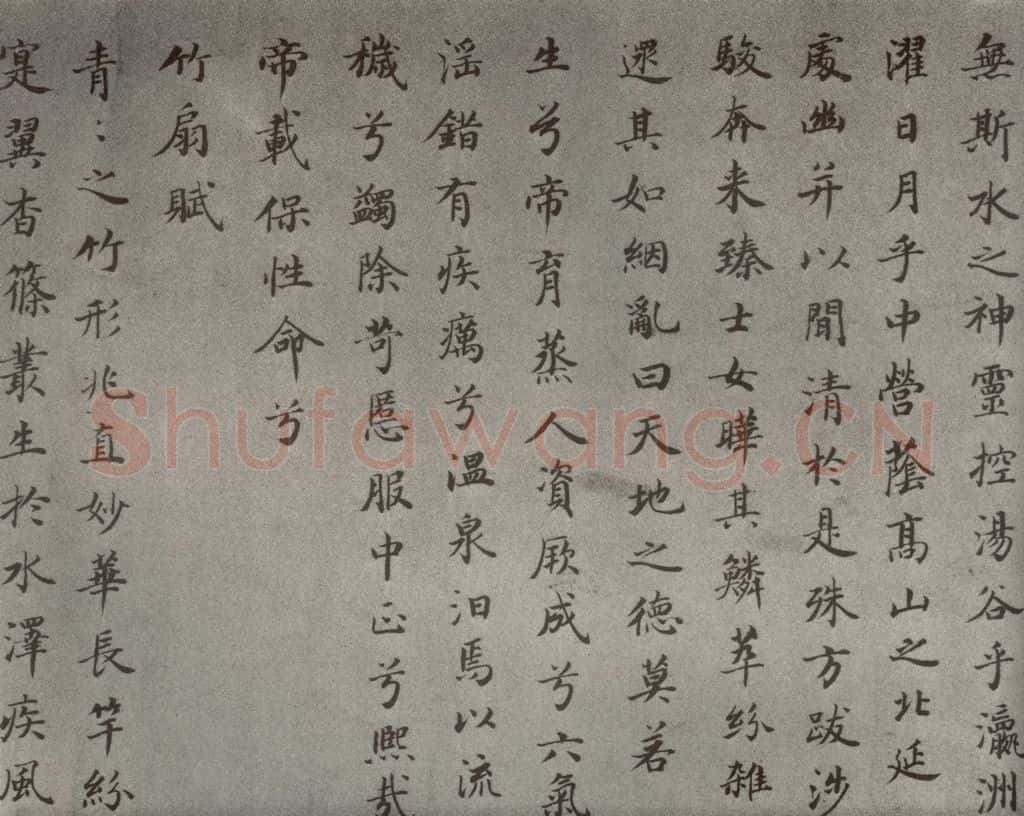 無斯水之神靈控湯谷乎瀛洲
濯日月乎中營蔭高山之北延
處幽并以閒清於是殊方跋涉
駿奔来臻士女曄其鱗萃紛雜
遝其如絪亂曰天地之德莫若
生兮帝育蒸人資厥成兮六氣
淫錯有疾癘兮溫泉汩焉以流
穢兮蠲除苛慝服中正兮熙哉
帝載保性命兮
竹扇賦
青〻之竹形兆直妙華長竿紛
寔翼杳篠叢生於水澤疾風
Shufawang.CN